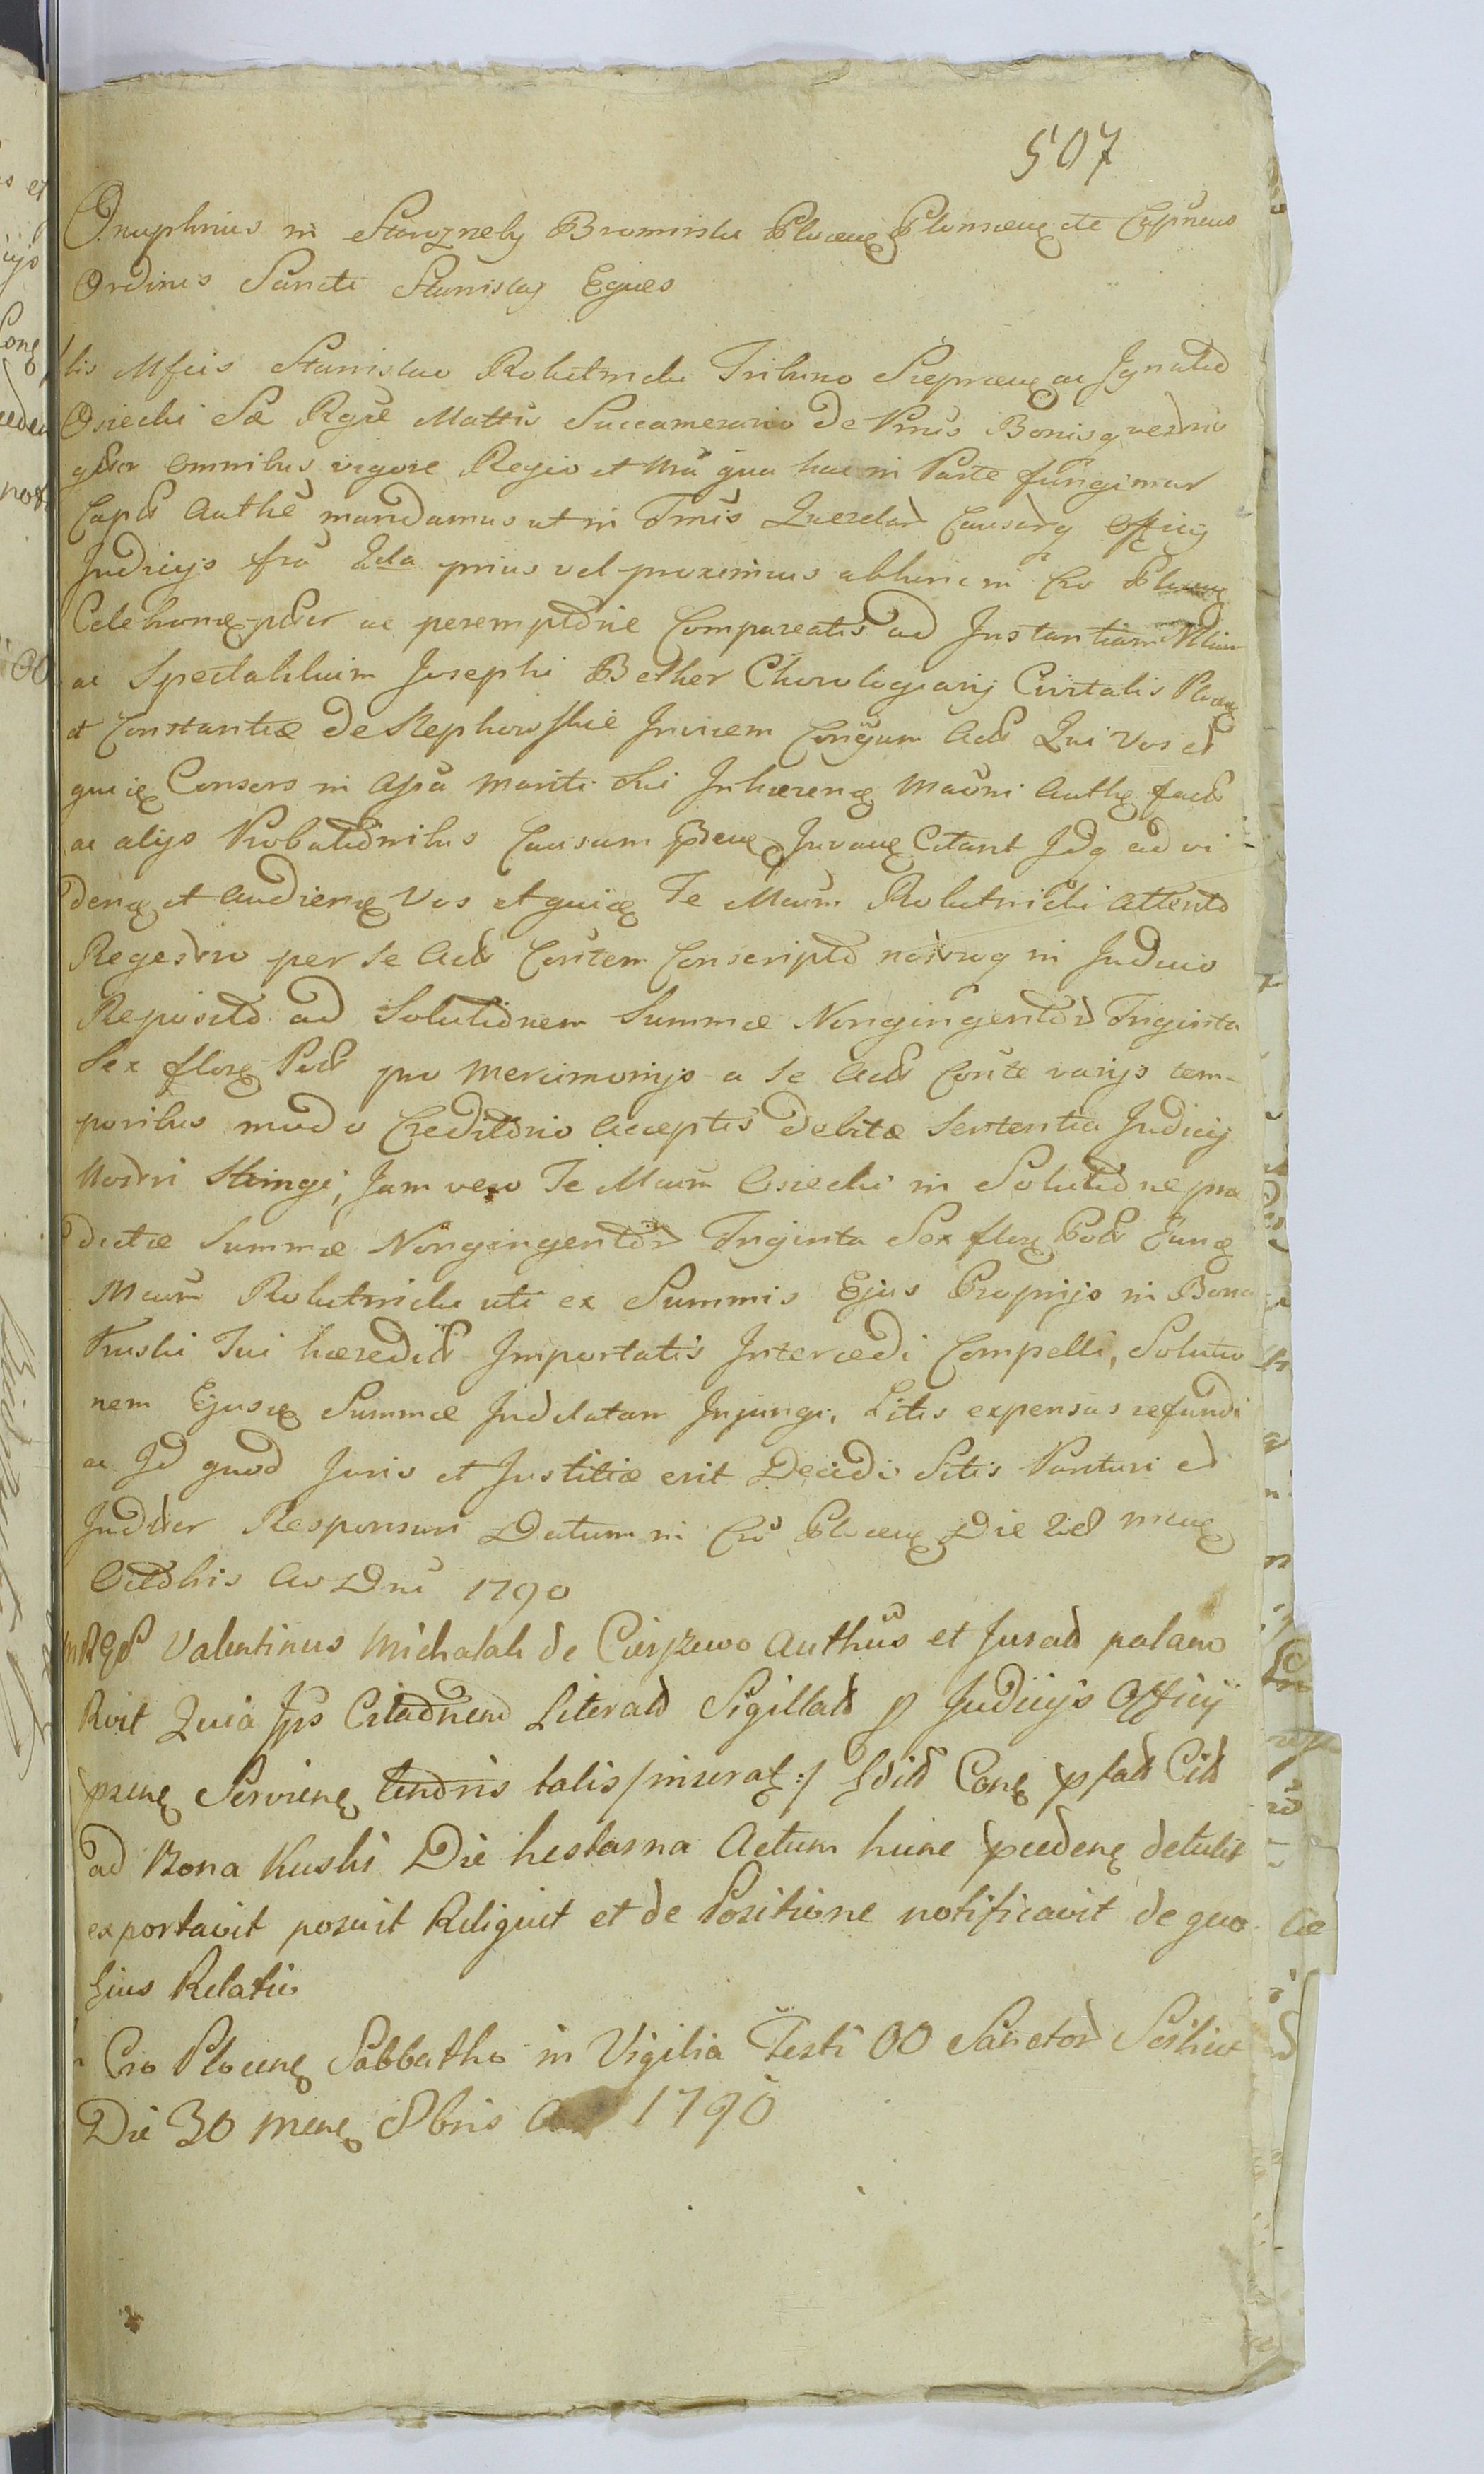 507
Onuphrius in Starozneby Bromirski Plocen Plonscen etc Capneus
Ordinis Sancti Stanislaj Eques
bis Mfcis Stanislao Rokitnicki Tribuno Sieprcen ac Ignatio
Osiecki Sae Rgiae Mattis Succamerario de Vrus Bonisq vestris
gnr omnibus vigore Regio et Nra qua hac in Parte fungimur
Capli Authe mandamus ut in Tmis Querelar Causarq Officij
Judicijs fra 2da prius vel proximius abhinc in Cro Plocen
Celebran pter ac peremptorie Compareatis ad Instantiam Nbilium
ac Spectabilium Josephi Bether Chorologiarij Civitatis Plocen
et Constantiae de Rephowskie Invicem Conjgum Act Qui Vos et
quie Consors in Assa Mariti Sui Inhaeren Manni Auth fact
ac alijs Probationibus Causam Bene Juvan Citant Idq ad vi
den et Audien Vos et quie Te Mcum Rokitnicki Attento
Regestro per se Act Contem Conscripto nostroq in Judicio
Reposito ad Solutionem Summae Nongingentor Triginta
Sex flor Pol pro Mercimonijs a Se Act Conte varijs tem-
poribus modo Creditorio acceptis Debitae Sententia Judicij
Nostri Stringi, Jam vero Te Mcum Osiecki in Solutione prae
dictae Summae Nongingentor Triginta Sex flor Pol Eun
Mcum Rokitnicki uti ex Summis Ejus Proprijs in Bona
Kuski Tui haeredit Importatis Intercedi Compelli, Solutio
nem Ejusd Summae Indilatam Injungi, Litis expensas refundi
ac Id quod Juris et Justitiae erit Decidi Sitis Parituri et
Judlter Responsuri Datum in Cro Plocen Die 21 men
Octobris Ao Dni 1790
Valentinus Michalak de Cierszewo Authus et Jurat palam
Rvit Quia Ips Citationem Literat Sigillat p Judicijs Officij
pren Servien tenoris talis /inserat:/ Edit Con pfat Cit
ad Bona Kuski Die hesterna Actum hunc pceden detulit
exportavit posuit Reliquit et de Positione notificavit de quo
hius Relatio
Cro Plocen Sabbatho in Vigilia Festi OO Sanctor Scilicet
Die 30 Men 8bris A 1790